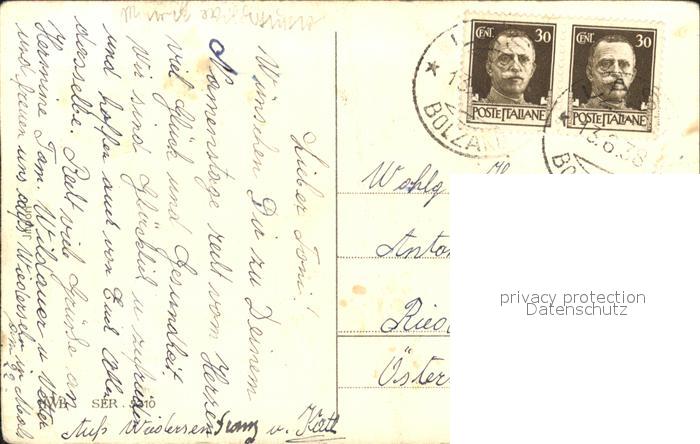 Lieber Toni!
Wünschen Dir zu Deinem
Namenstage recht vom Herzen
viel Glück und Gesundheit
Wir sind Glücklich u. zufrieden
und hoffen auch von Euch Allen
dasselbe. Recht viele Grüße an
Hermine Fam. Wildauer u. Vetter
und freuen uns aufs Wiedersehn
Auf Wiedersehen Franz u. Kathl
SER. 310
Wohlg
Anton
Ried
Öster
CENT. 30
POSTE ITALIANE
CENT. 30
POSTE ITALIANE
BOLZANO
13.6.38
BO
privacy protection
Datenschutz